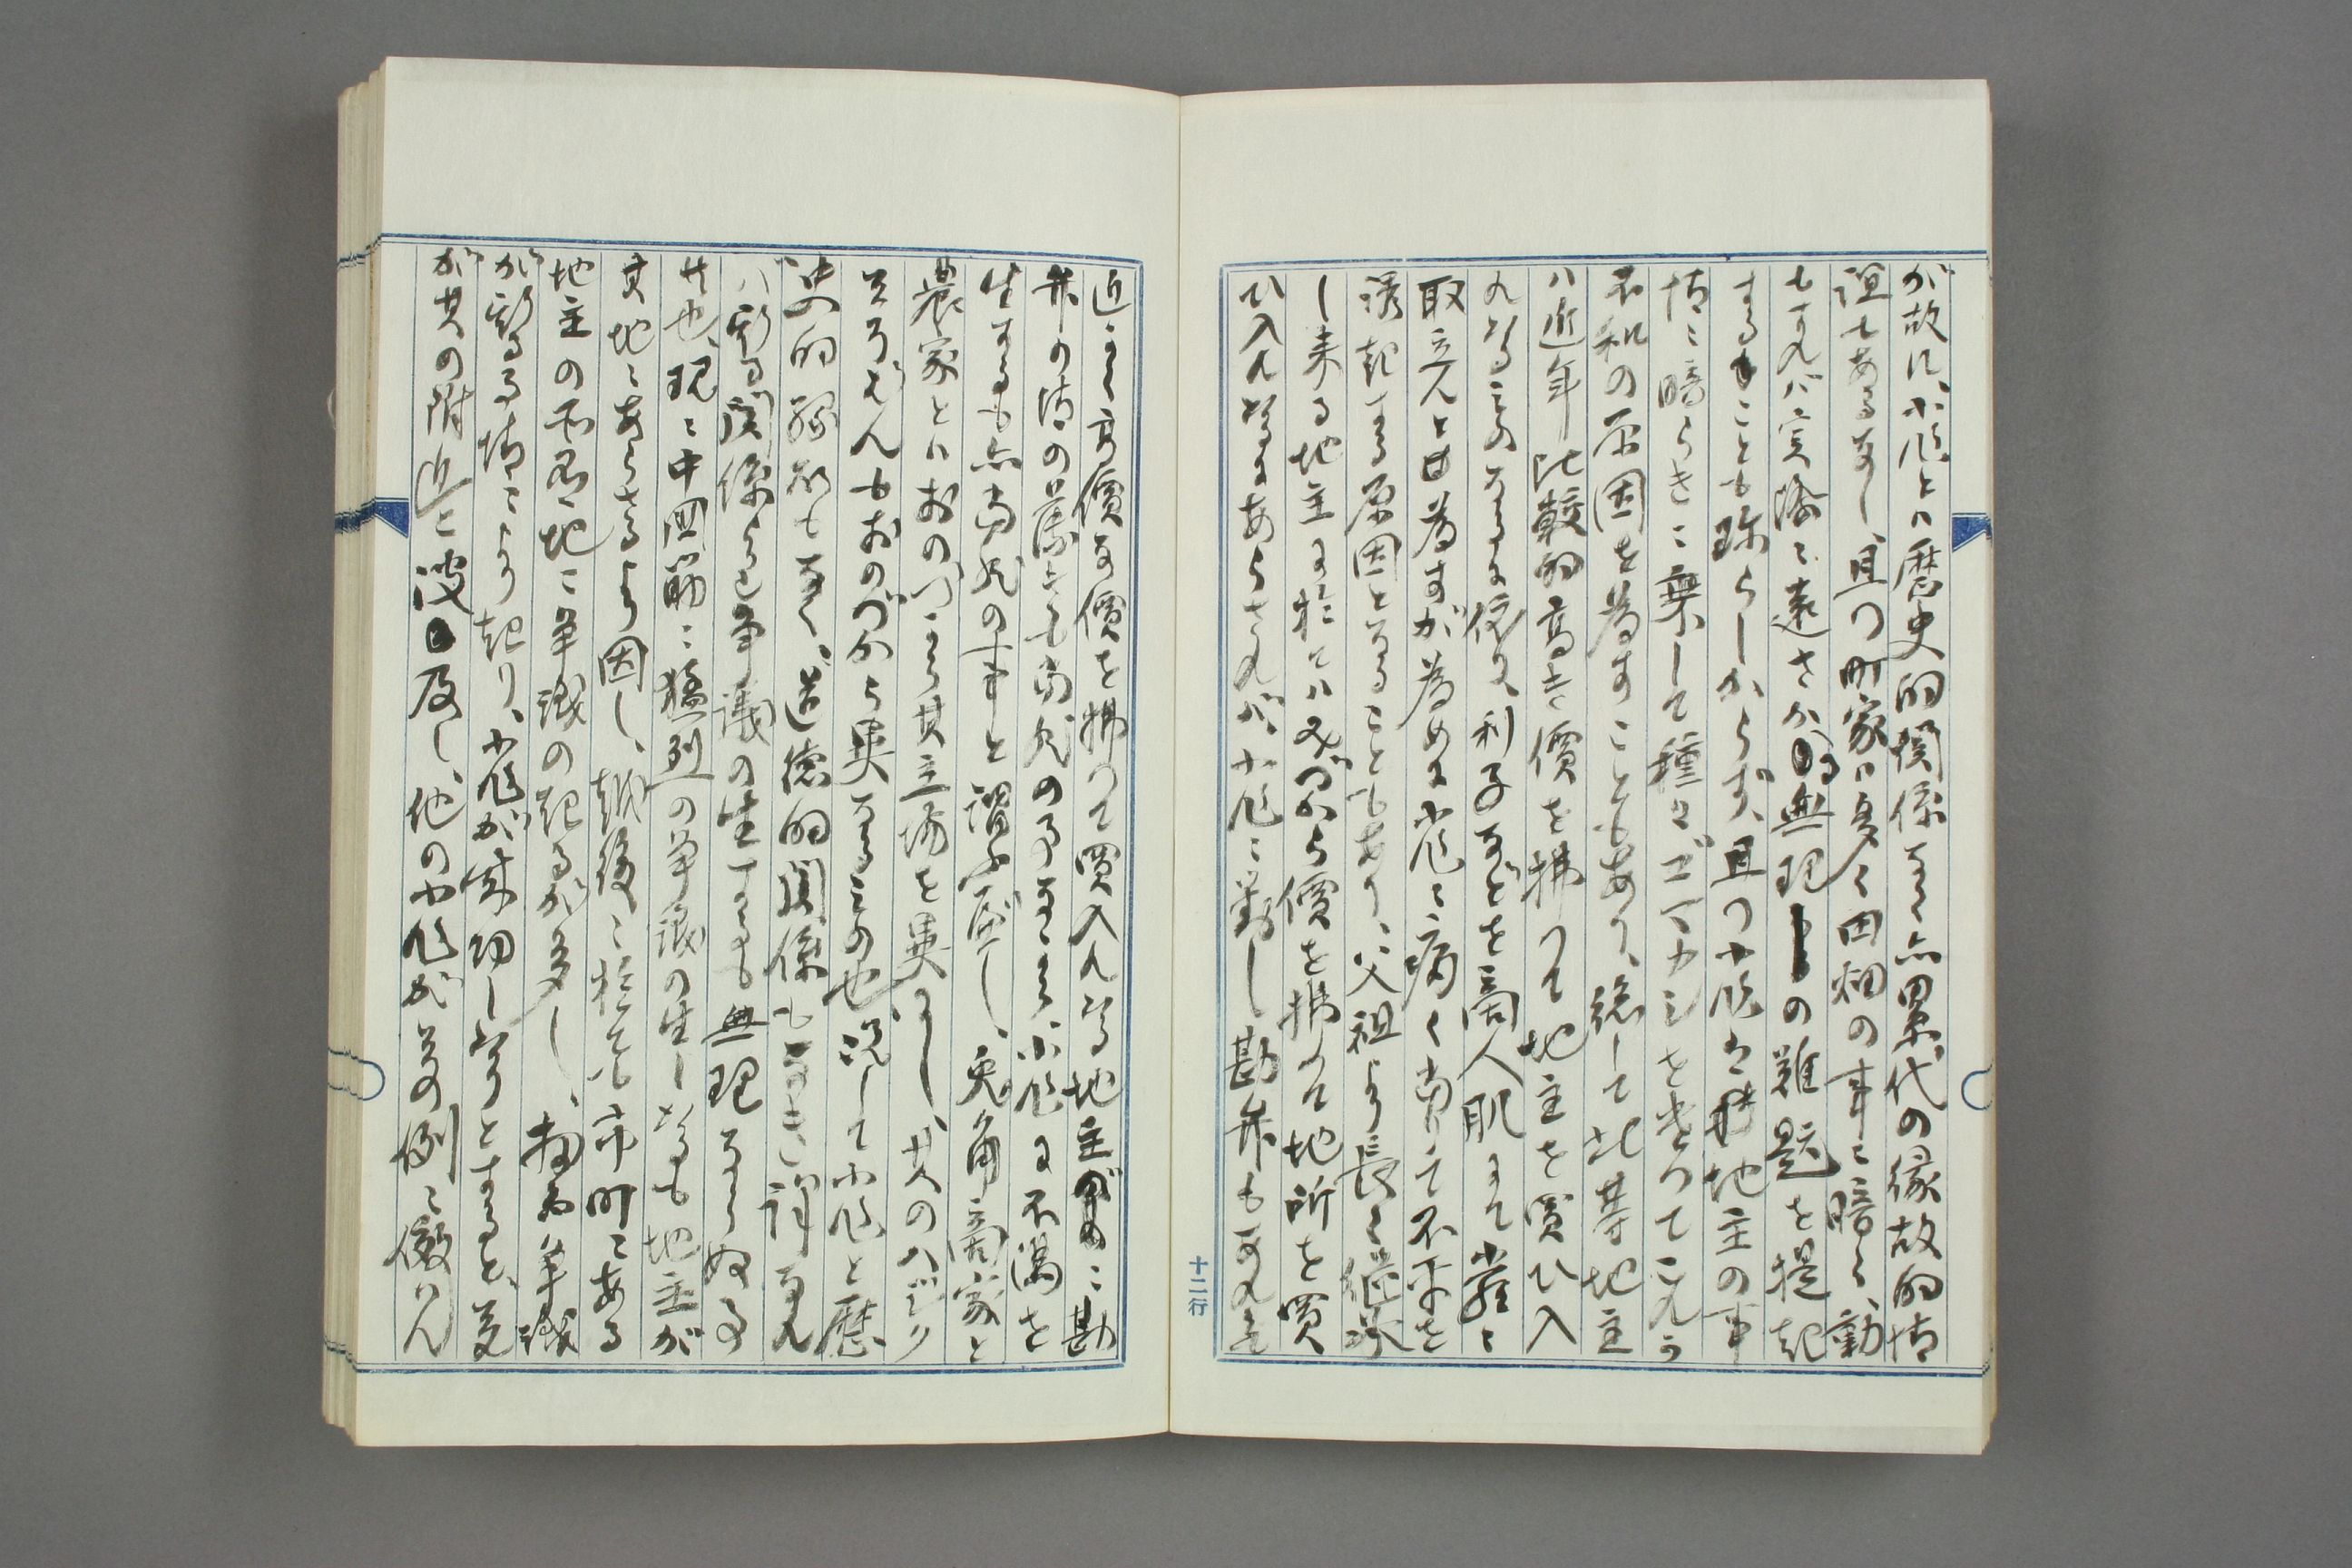 が故に、小作とハ歴史的関係なく亦累代の縁故的情
誼もあるなし、且つ町家ハ多く田畑の事に暗く、動
もすれバ実際に遠さかる無理の難題を提起
することも珍らしからず、且つ小作は地主の事
情に暗らきに乗して種々ゴマカシを
不和の原因を為すこともあり、総して此等地主
ハ近年比較的高き價を拂つて地主を買ひ入
れたるものなるに依り、利子などを商人肌にて厳に
取立んと為すが為めに小作に痛く当りて不平を
誘起する原因となることもあり、父祖より長く継承
し来る地主に於てハみづから價を拂つて地所を買
ひ入れたるにあらされバ、小作に対し勘弁もなれど
近く高價な價を拂つて買入れたる地主が勘
弁の情の薄きも当然の事なるべく、小作に不満を
生するも亦当然の事と謂ふべし、兎角商家と
農家とハおのづから其立場を異にし、其のハジク
そろばんもおのづから異なるもの也、況して小作と歴
史的縁故もなく、道徳的関係もなき、詳なれ
ハ新る関係より争議の生するも無理ならぬ事
共也、現に中四筋に猛烈の争議の生したるも地主が
其地にあらさるより因し、越後に於ても市町にある
地主の所有地に争議の起るが多し、
が斯る事情により起り、小作が成功したりとすると、直
が其の附近に波及し、他の小作が其の例に傚はん
十二行